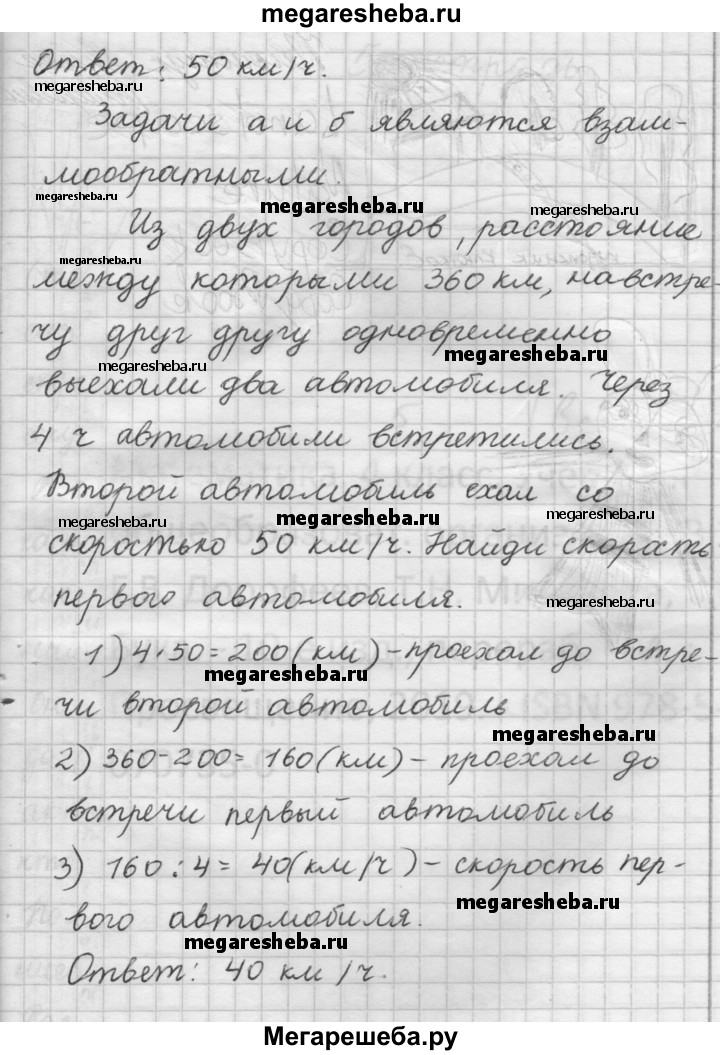 megaresheba.ru
Ответ: 50 км/ч.
megaresheba.ru
Задачи а и б являются взаи-
мообратными.
megaresheba.ru megaresheba.ru megaresheba.ru
Из двух городов, расстояние
megaresheba.ru
между которыми 360 км, навстре-
чу друг другу одновременно
megaresheba.ru megaresheba.ru
выехали два автомобиля. Через
4 ч автомобили встретились.
Второй автомобиль ехал со
megaresheba.ru megaresheba.ru megaresheba.ru
скоростью 50 км/ч. Найди скорасть
первого автомобиля.
megaresheba.ru
1) 4·50=200(км)-проехал до встре-
megaresheba.ru
чи второй автомобиль
megaresheba.ru
2) 360-200= 160(км)- проехал до
встречи первый автомобиль
3) 160:4= 40(км/ч)- скорость пер-
megaresheba.ru
вого автомобиля.
megaresheba.ru
Ответ: 40 км/ч.
Мегарешеба.ру